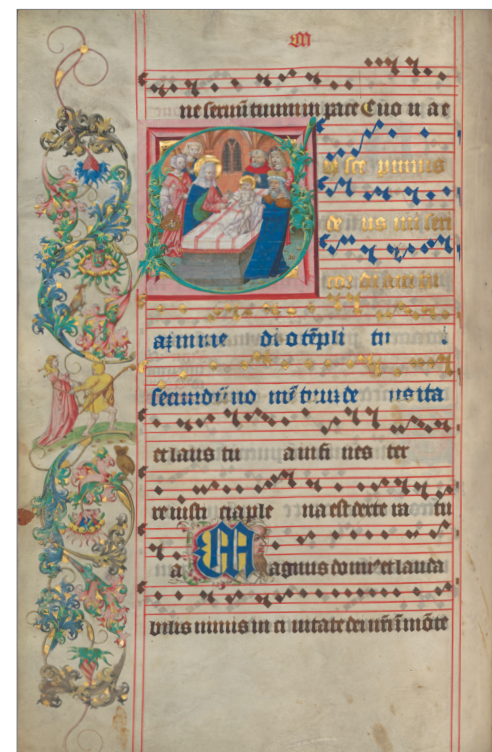 M
ne seruū tuum in pace Euo u ae
S us ce pimus
de us mi seri
cor di am tu
am in me di o tēpli tu
secundū no mē tuum de us ita
et laus tu a in fi nes ter
re iusti cia ple na est dexte ra tu
a Magnus dom et lauda
bilis nimis in ci uitate dei nr̄i ī mōte